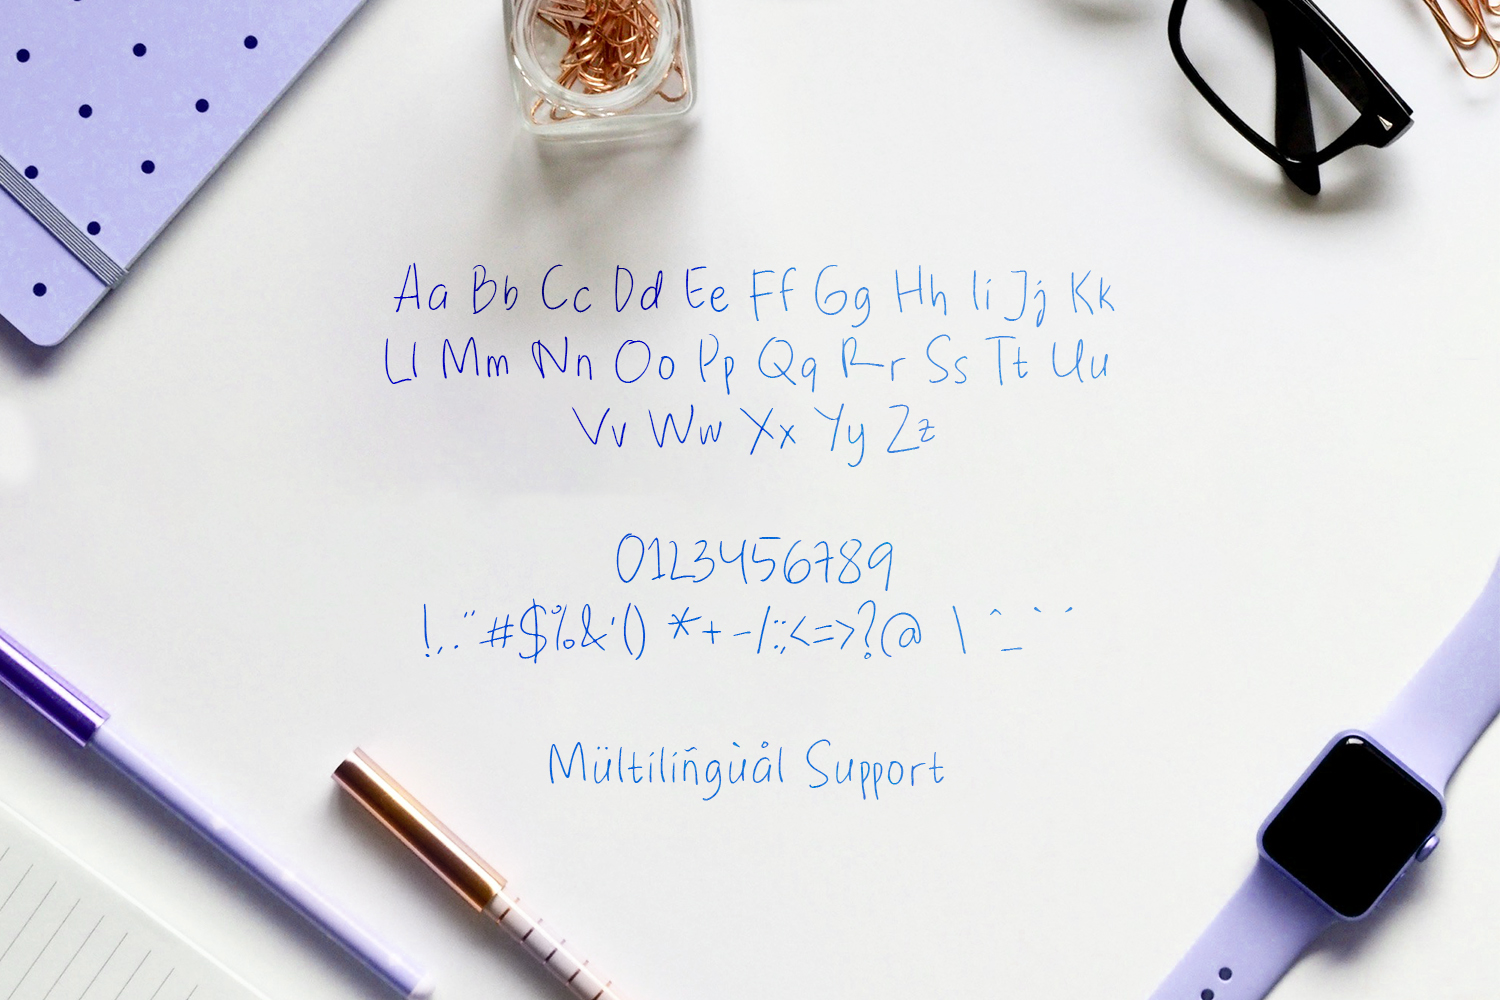 Aa Bb Cc Dd Ee Ff Gg Hh Ii Jj Kk
Ll Mm Nn Oo Pp Qq Rr Ss Tt Uu
Vv Ww Xx Yy Zz
0123456789
!,.¨#$%&'() *+-/:;<=>?@ \ ^_ ` ´
Mültilíñgùål Support